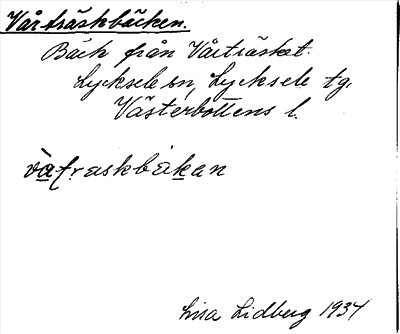 Vårträskbäcken.
Bäck från Vårträsket.
Lycksele sn, Lycksele tg.
Västerbottens l.
Lisa Lidberg 1934